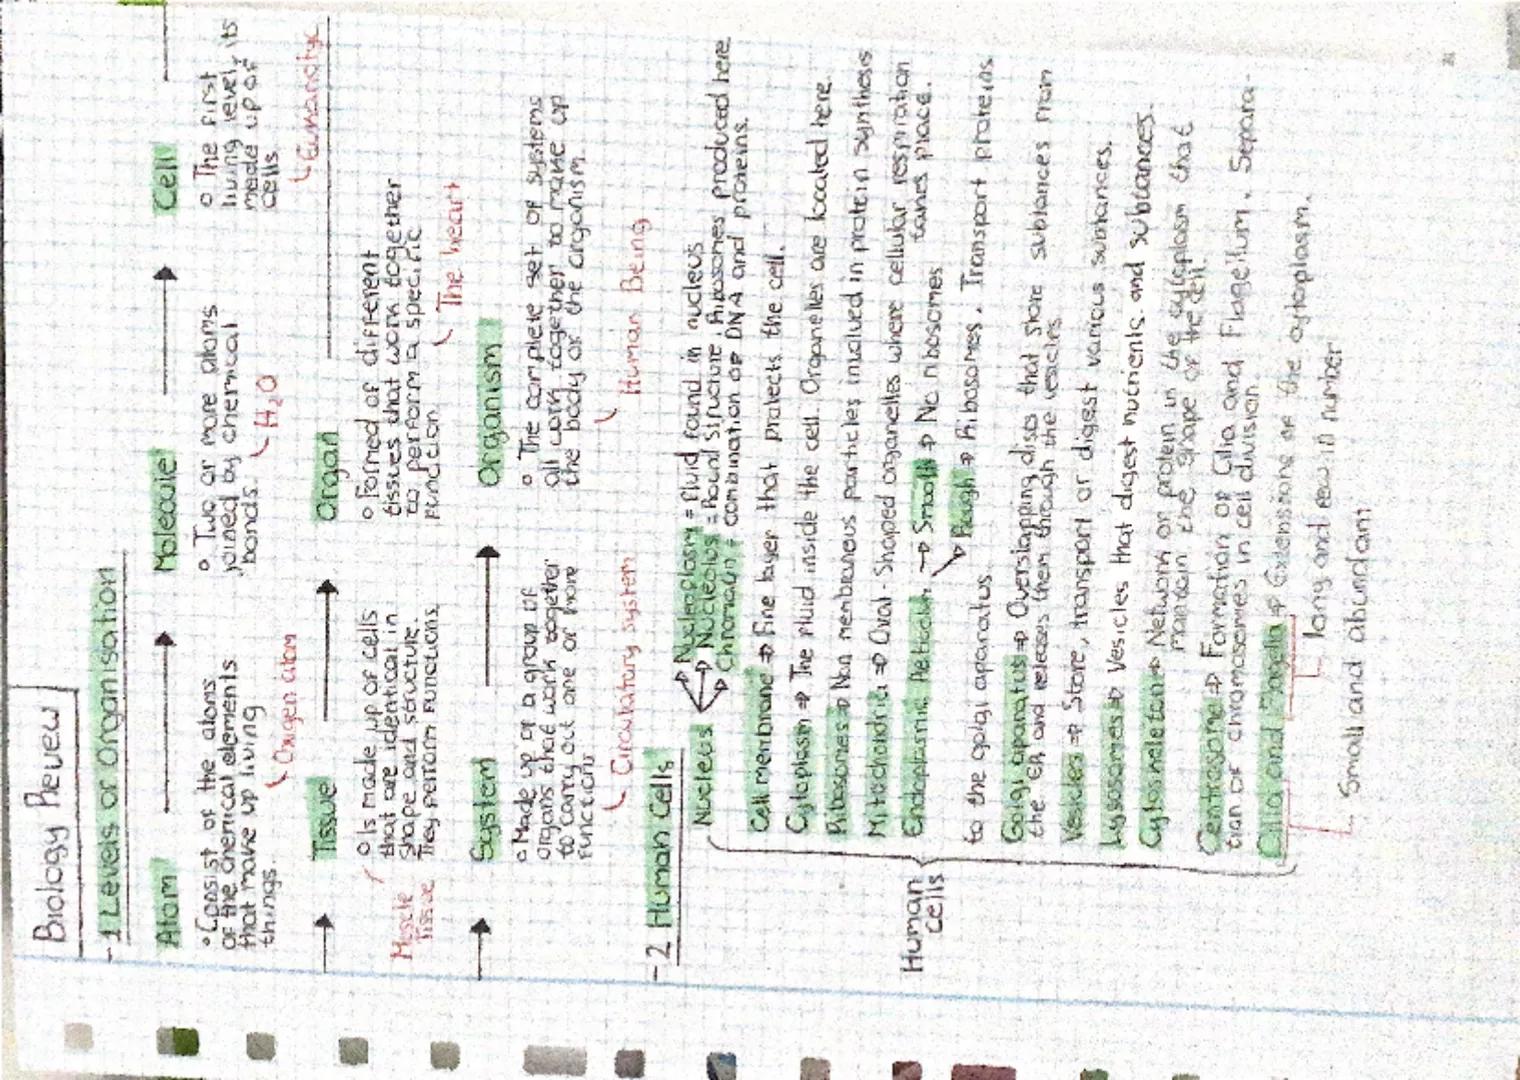 Biology Review
-1 Levels of Organisation
Atom → Molecule → Cell
• Consist of the atoms
of the chemical elements
that make up living
things.
Oxigen atom
• Two or more atoms
joined by chemical
bonds.
H₂O
• The first
living level, its
made up of
cells.
→ Tissue → Organ
• Is made up of cells
that are identical in
shape and structure.
They perform functions
Muscle
Tissue
• Formed of different
tissues that work together
to perform a specific
function
The heart
→ System → Organism
• Made up of a group of
organs that work together
to carry out one or more
functions
Circulatory system
• The complete set of systems
all work together to make up
the body or the organism.
Human Being
-2 Human Cells
Human
cells
Nucleus → Nucleoplasm = fluid found in nucleus
→ Nucleolus = Round structure. Ribosomes produced here.
→ Chromatin = combination of DNA and proteins.
Cell membrane ⇒ Fine layer that protects the cell.
Cytoplasm ⇒ The fluid inside the cell. Organelles are located here.
Ribosomes ⇒ Non membranous particles involved in protein synthesis
Mitochondria ⇒ Oval-Shaped organelles where cellular respiration
takes place.
Endoplasmic Reticulum → Smooth ⇒ No ribosomes
→ Rough ⇒ Ribosomes. Transport proteins
to the golgi aparatus.
Golgi aparatus ⇒ Overslapping discs that store subtances from
the ER and releases them through the vesicles.
Vesicles ⇒ Store, transport or digest various subtances.
Lysosomes ⇒ Vesicles that digest nutrients and subtances.
Cytoskeleton ⇒ Network of protein in the cytoplasm that
maintain the shape of the cell.
Centrosome ⇒ Formation of Cilia and Flagellum. Separa-
tion of chromosomes in cell division.
Cilia and Flagella ⇒ Extensions of the cytoplasm.
long and few in number
Small and abundant